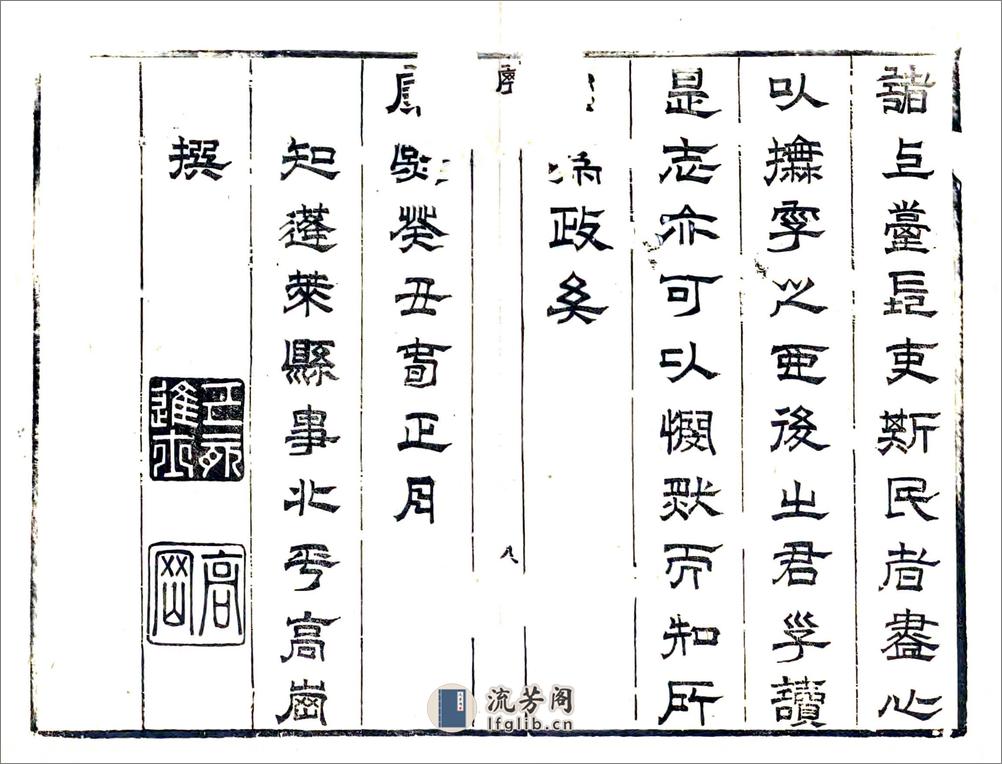 諸上臺長吏斯民者盡心
以撫字之亟後之君子讀
是志亦可以憫然而知所
爲政矣
序
八
康熙癸丑春正月
知蓬萊縣事北平高崗
撰
進士
高岡
流芳阁
lfglib.cn